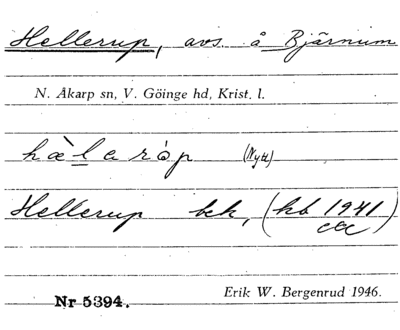 Hellerup, avs. å Bjärnum
N. Åkarp sn, V. Göinge hd, Krist. l.
hæ̀laróp (Nytt)
Hellerup bek, (kb 1941)
Nr 5394. Erik W. Bergenrud 1946.